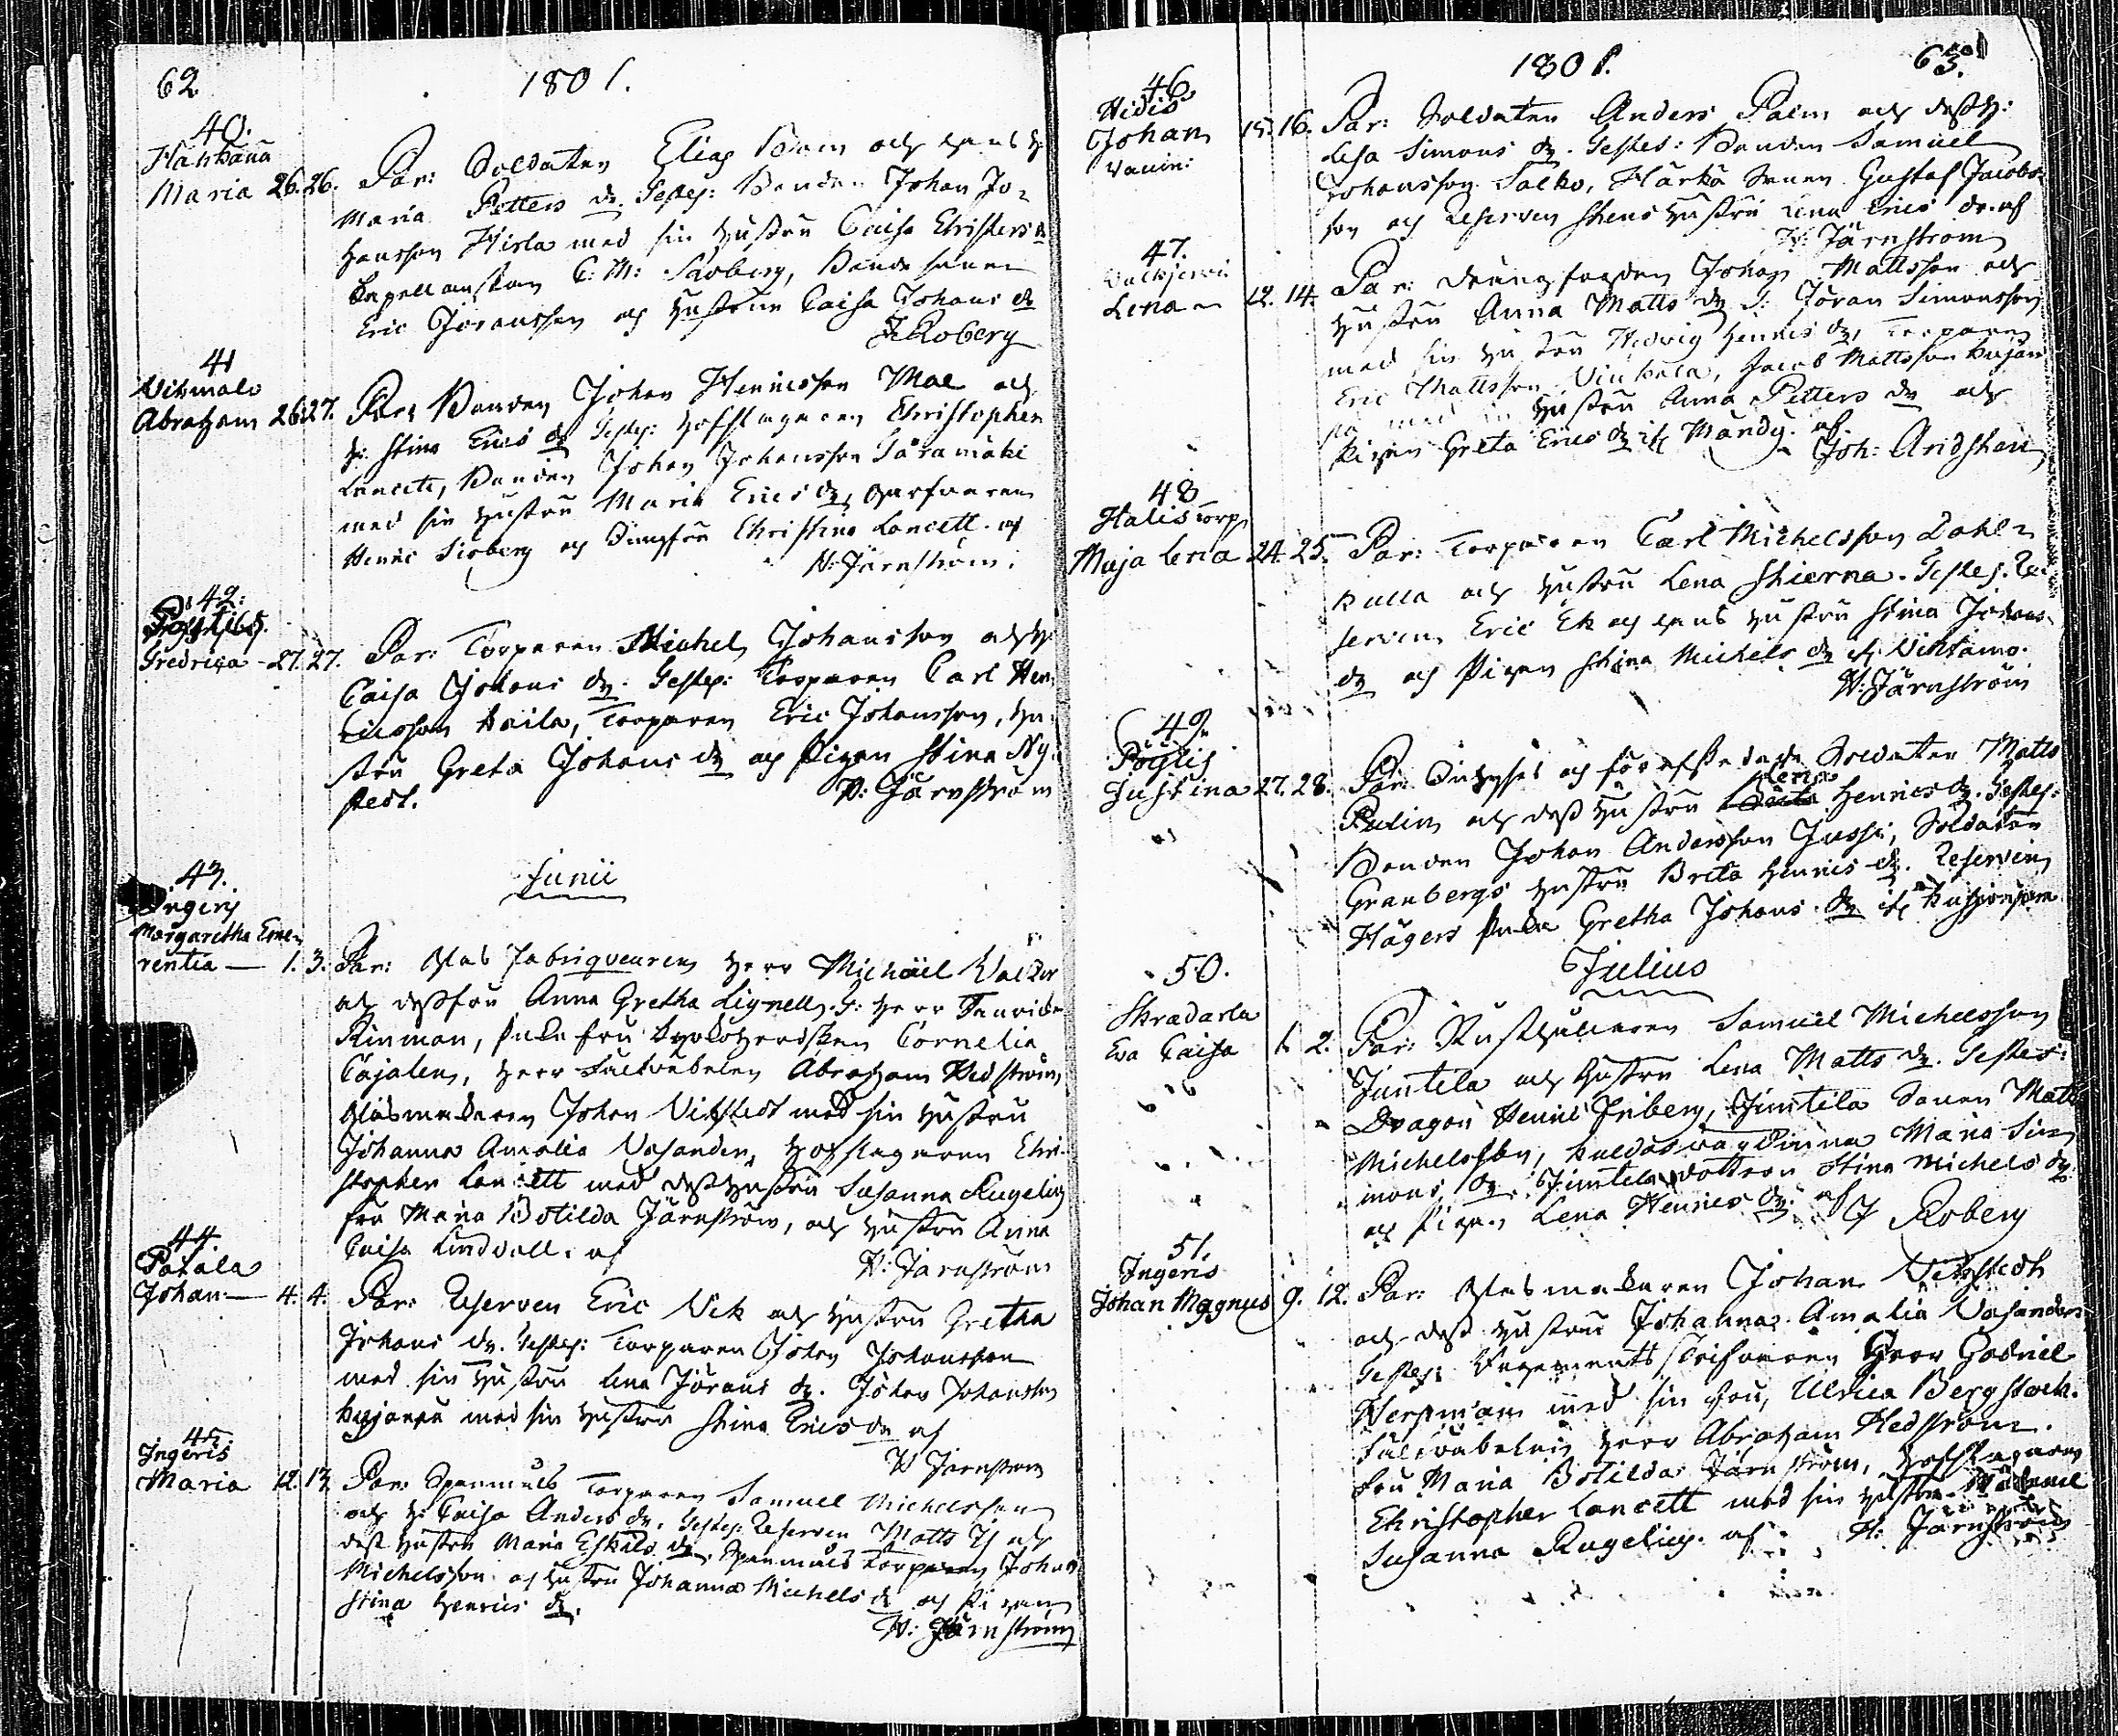 62
1801.
40.
Maria 26. 26. Par: Soldaten Elias och hans h:
Maria Petters dr. Testes: Bonden Johan Jo=
hansson Hirla med sin hustru Caisa Christers dr
Capellanskan C: M: Savberg, Bonde sonen
Eric Joransson och hustrun Caisa Johans dr
F Roberg
41
Abraham 26. 27. Par: Bonden Johan Henricsson Mae och
h: Stina Erics dr Testes: hofslagaren Christopher
Lancett, Bonden Johan Johansson Saramaki
med sin hustru Maria Erics dr, garfvaren
Henric Sioberg och Jungfru Christina Lancett. af
N: Järnström.
42.
Fredrica - 27. 27. Par: Torparen Michel Johansson och h:
Caisa Johans dr. Testes: Torparen Carl Hen
ricsson Haila, Torparen Eric Johansson, hu
stru Greta Johans dr och Pigan Stina Ny
stedt.
N: Järnström
Junii
43.
Ingeris
Margaretha Eme-
rentia — 1. 3. Par: Glas fabriqueuren Herr Michael Walker
och dess fru Anna Gretha Lignell. T: Herr
Rinman, Enke fru Kyrkoherdskan Cornelia
Cajalen, Herr Fältväbelen Abraham Hedström,
Glasmakaren Johan Vikstedt med sin hustru
Johanna Amalia Vasander, Hofslagaren Chri-
stopher Lancett med dess hustru Susanna Rugelius
fru Maria Botilda Järnström, och hustru Anna
Caisa Lindvall. af
N: Järnström
44.
Patala
Johan — 4. 4. Par: Reserven Eric Vik och hustru Gretha
Johans dr. Testes: Torparen Johan Johansson
med sin hustru Lena Jörans dr. Johan Johansson
med sin hustru Stina Erics dr af
N Järnström
45.
Ingeris
Maria 12. 13 Par: Spanmåls Torparen Samuel Michelsson
och h: Caisa Anders dr, Testes: Reserven Matts och
dess hustru Maria Eskils dr. Spanmåls Torparen Johan
Michelsson och hustru Johanna Michels dr och Pigan
Stina Henrics dr.
N: Järnström
1801.
63.
46
Hidis
Johan 15. 16. Par: Soldaten Anders Palm och dess h:
Lisa Simons dr. Testes: Bonden Samuel
Johansson Salko, Härkä Sonen Gustaf Jacobs-
son och Reserven Stens hustru Lena Erics dr. af
N: Järnström
47.
Lena 12. 14. Par: Johan Mattsson och
hustru Anna Matts dr T: Jöran Simonsson
med sin hustru Hedvig Henrics dr, Torparen
Eric Mattsson Jacob Mattsson
med sin hustru Anna Petters dr och
Pigan Greta Erics dr af
Joh: Andsten
48
Halis torp
Maja Lena 24. 25. Par: Torparen Carl Michelsson Dahl=
kulla och hustru Lena Stierna. Testes: Re-
serven Eric Ek och hans hustru Stina Johans
dr och Pigan Stina Michels dr
N: Järnström
49.
Justina 27. 28. Par: och för afskedade Soldaten Matts
Palin och dess hustru Lena Henrics dr. Testes:
Bonden Johan Andersson Jussi, Soldaten
Granbergs hustru Brita Henrics dr. Reserven
Hägers Enka Gretha Johans dr
Julius
50.
Skradarla
Eva Caisa 1. 2. Par: Rusthållaren Samuel Michelsson
Juntela och hustru Lena Matts dr. Testes:
Dragon Henric Friberg, Juntela Sonen Matts
Michelsson, Maria Si-
mons dr. Juntela dottren Stina Michels dr.
och Pigan Lena Henrics dr. af J Roberg
51.
Ingeris
Johan Magnus 9. 12. Par: Glasmakaren Johan Vikstedt
och dess hustru Johanna Amalia Vasander.
Testes: Regements skrifvaren Herr Gabriel
med sin fru, Ulrica Bergstock.
Fältväbelen Herr Abraham Hedström.
fru Maria Botilda Järnström, Hofslagaren
Christopher Lancett med sin hustru
Susanna Rugelius. af N: Järnström